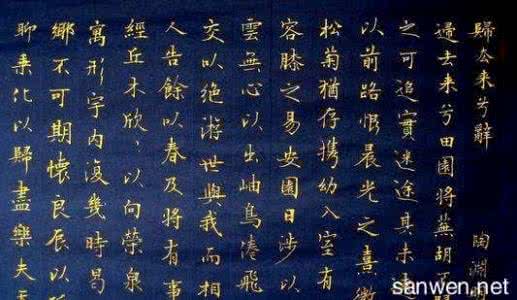 歸去来兮辭 陶淵
歸去来兮田園將蕪胡不
之可追實迷途其未遠
以前路恨晨光之熹微
松菊猶存携幼入室有
容膝之易安園日涉以
雲無心以出岫鳥倦飛
交以絶游世與我而相
人告餘以春及將有事
經丘木欣〻以向榮泉
寓形宇内復幾時曷
鄉不可期懷良辰以
聊乘化以歸盡樂夫天
sanwen.net